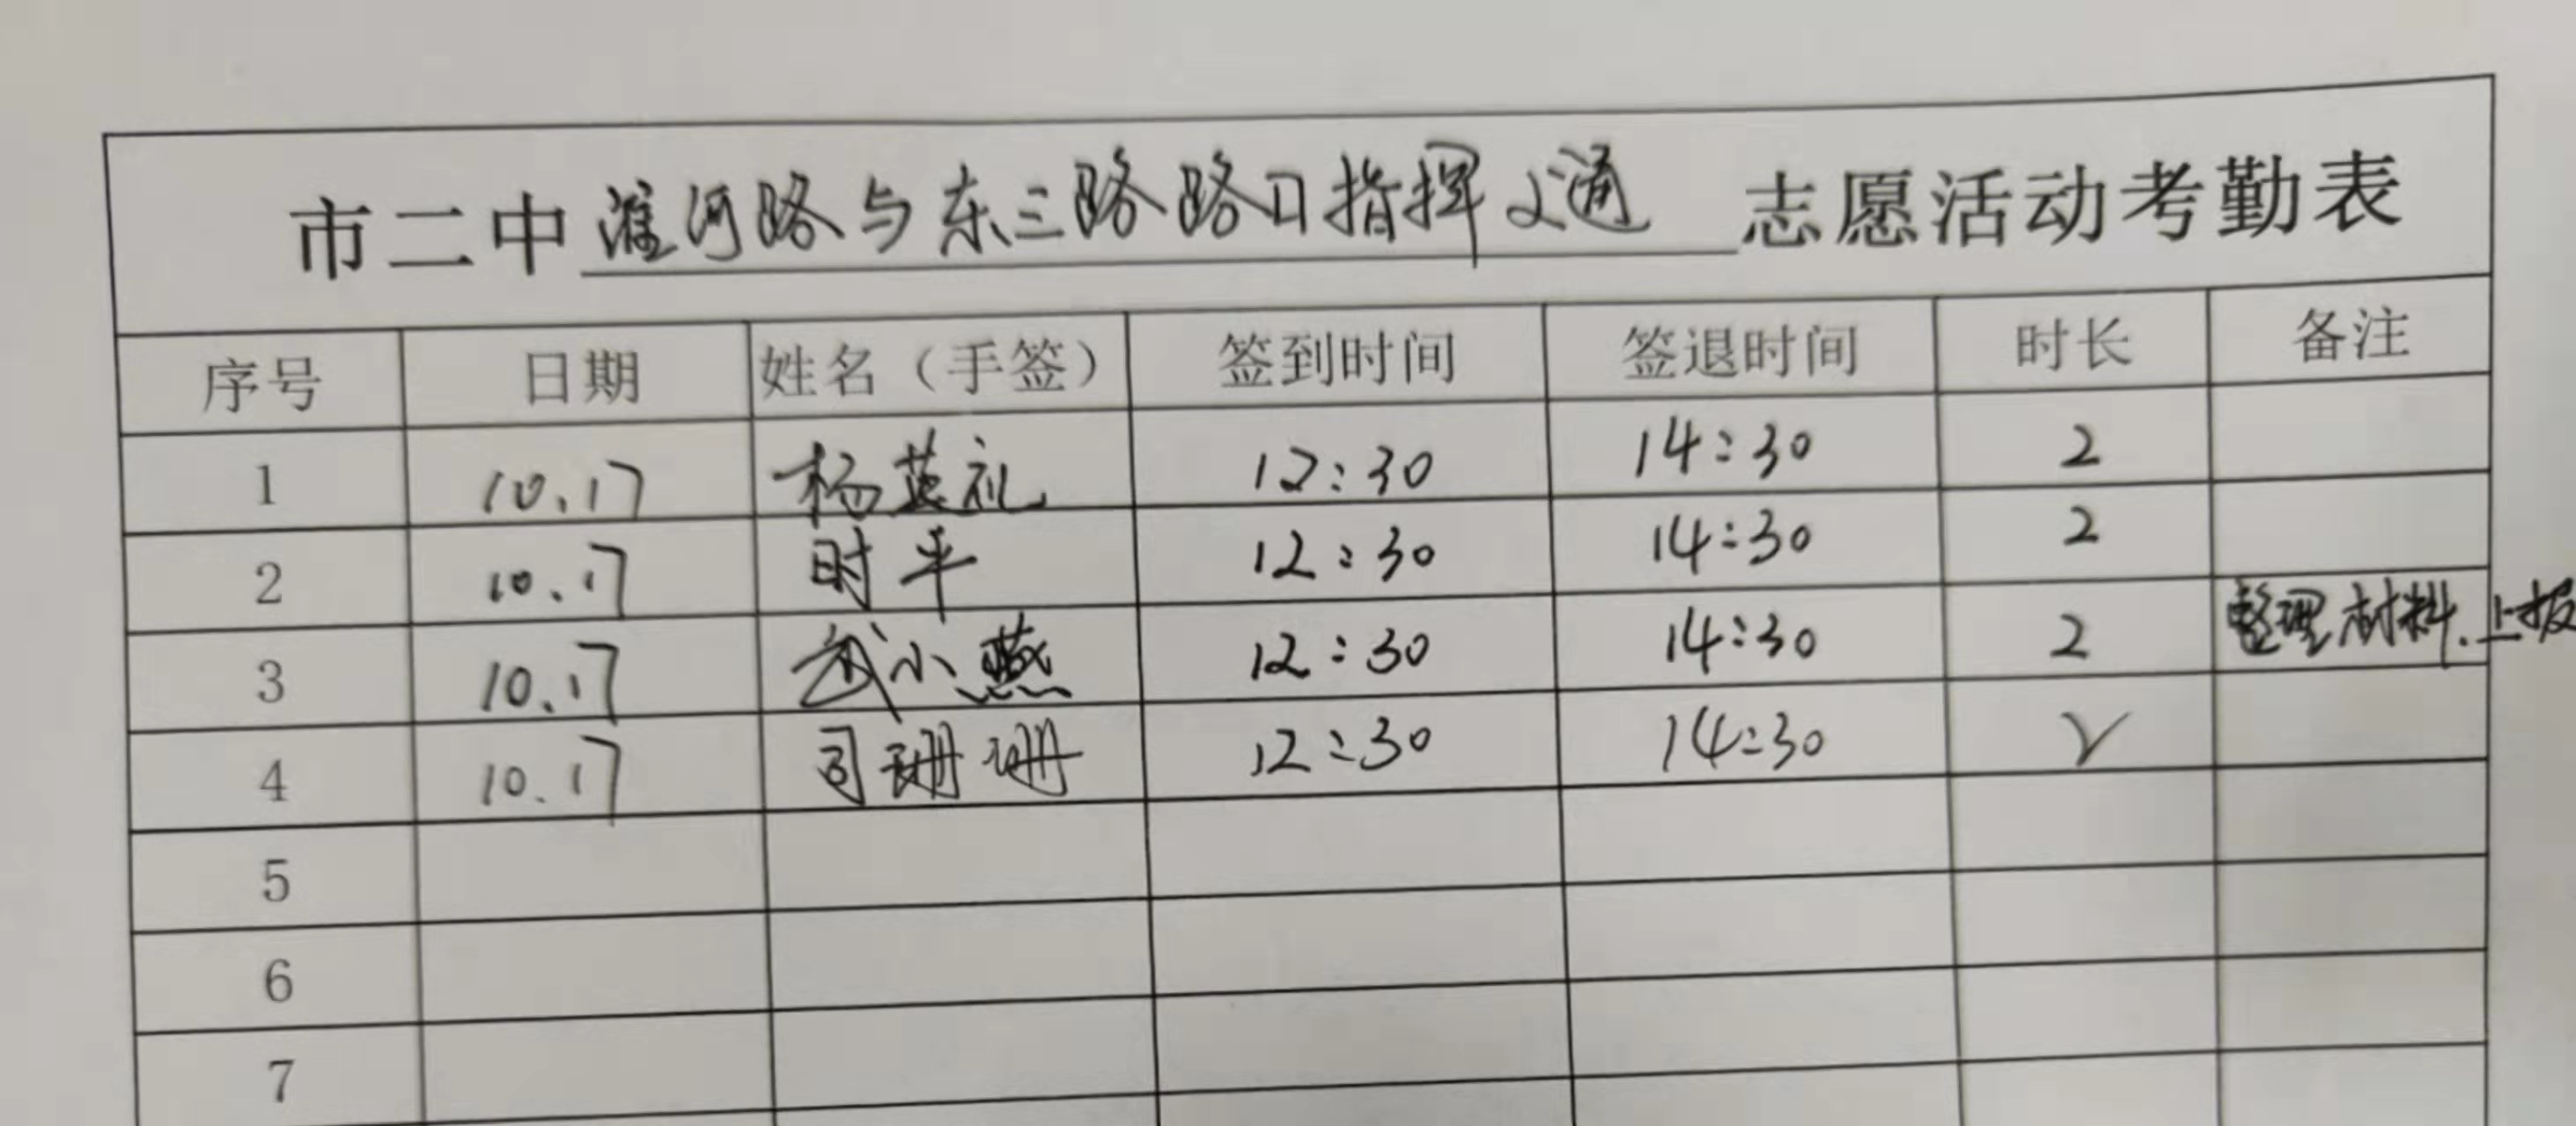 市二中淮河路与东三路路口指挥交通志愿活动考勤表
序号 日期 姓名（手签） 签到时间 签退时间 时长 备注
1 10.17 杨英礼 12:30 14:30 2
2 10.17 时平 12:30 14:30 2
3 10.17 武小燕 12:30 14:30 2 整理材料.上报
4 10.17 司珊珊 12:30 14:30 2
5
6
7